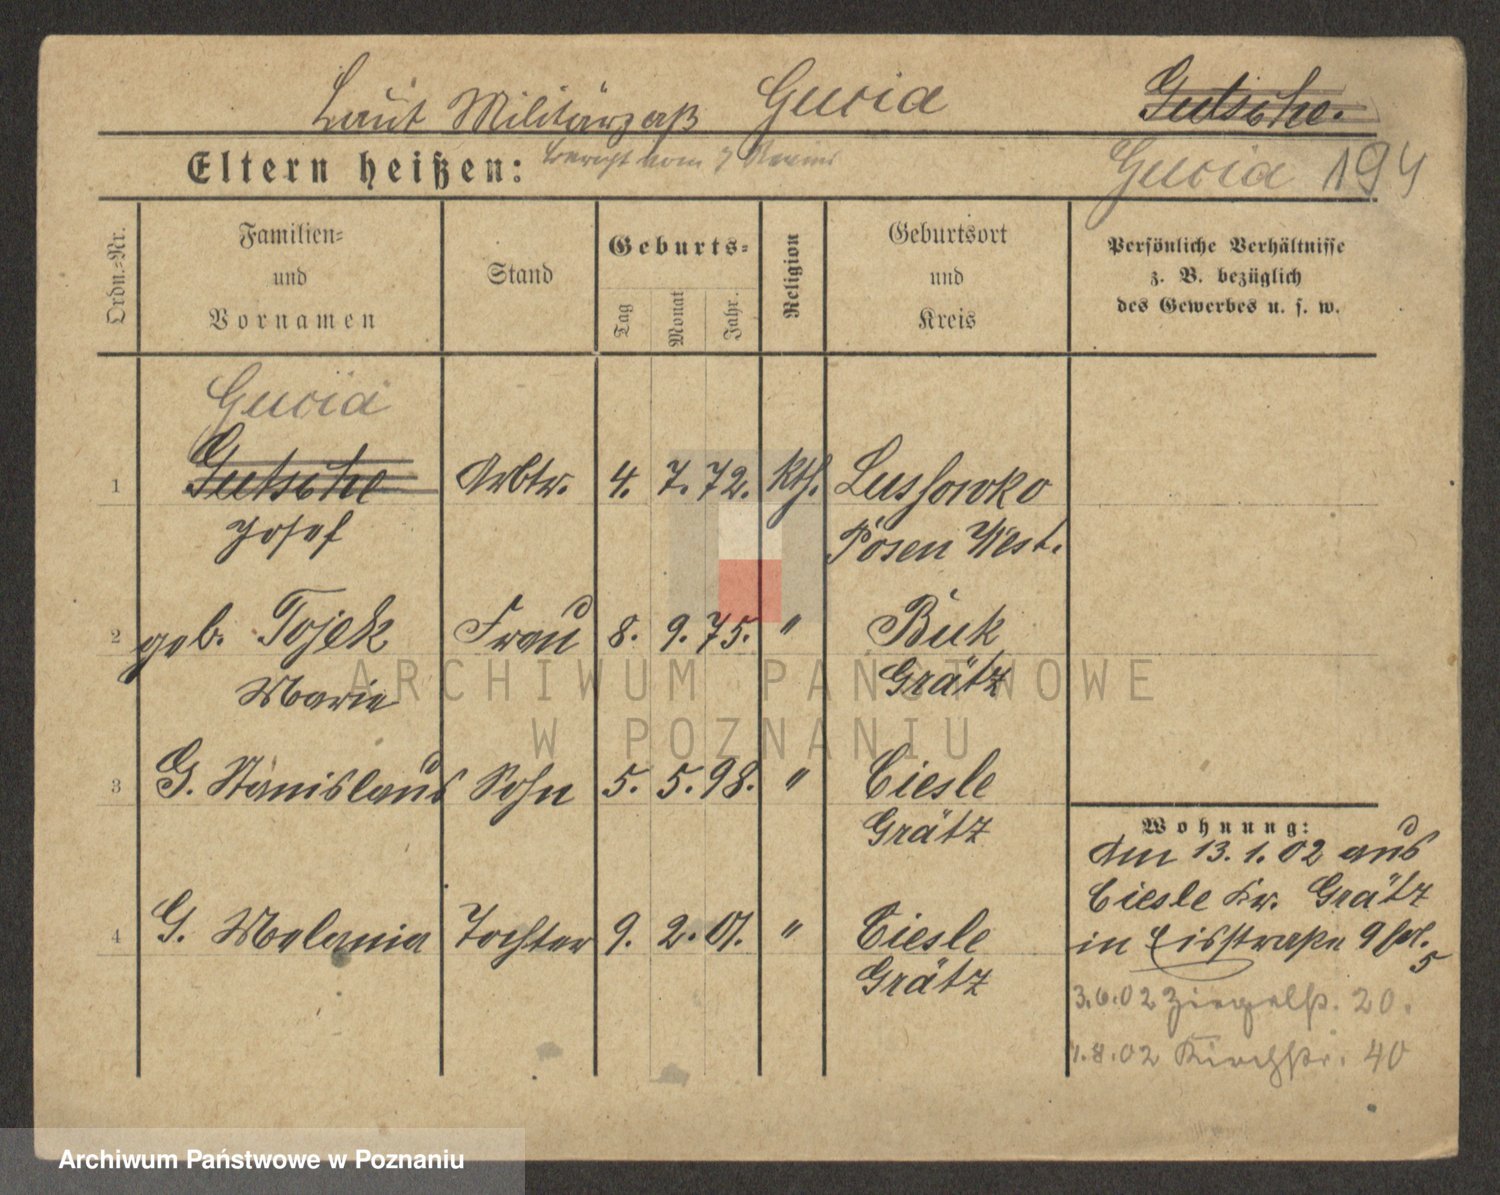 Laut Militärpaß Gucia Gutsche.
Eltern heißen:
Gucia 194
Ordn.-Nr.
Familien-
und
Vornamen
Stand
Geburts-
Tag
Monat
Jahr.
Religion
Geburtsort
und
Kreis
Persönliche Verhältnisse
z. B. bezüglich
des Gewerbes u. s. w.
Gucia
1 Gutsche Arbtr. 4. 7. 72. kth. Lussowko
Josef Posen West.
2 geb. Tojek Frau 8. 9. 75. " Buk
Marie Grätz
3 G. Stanislaus Sohn 5. 5. 98. " Ciesle
Grätz
4 G. Melania Tochter 9. 2. 01. " Ciesle
Grätz
Wohnung:
Am 13.1.02 aus
Ciesle Kr. Grätz
in Eisstraße 9
5
3.6.02 Ziegelstr. 20.
1.8.02 Kirchstr. 40
ARCHIWUM PAŃSTWOWE
W POZNANIU
Archiwum Państwowe w Poznaniu